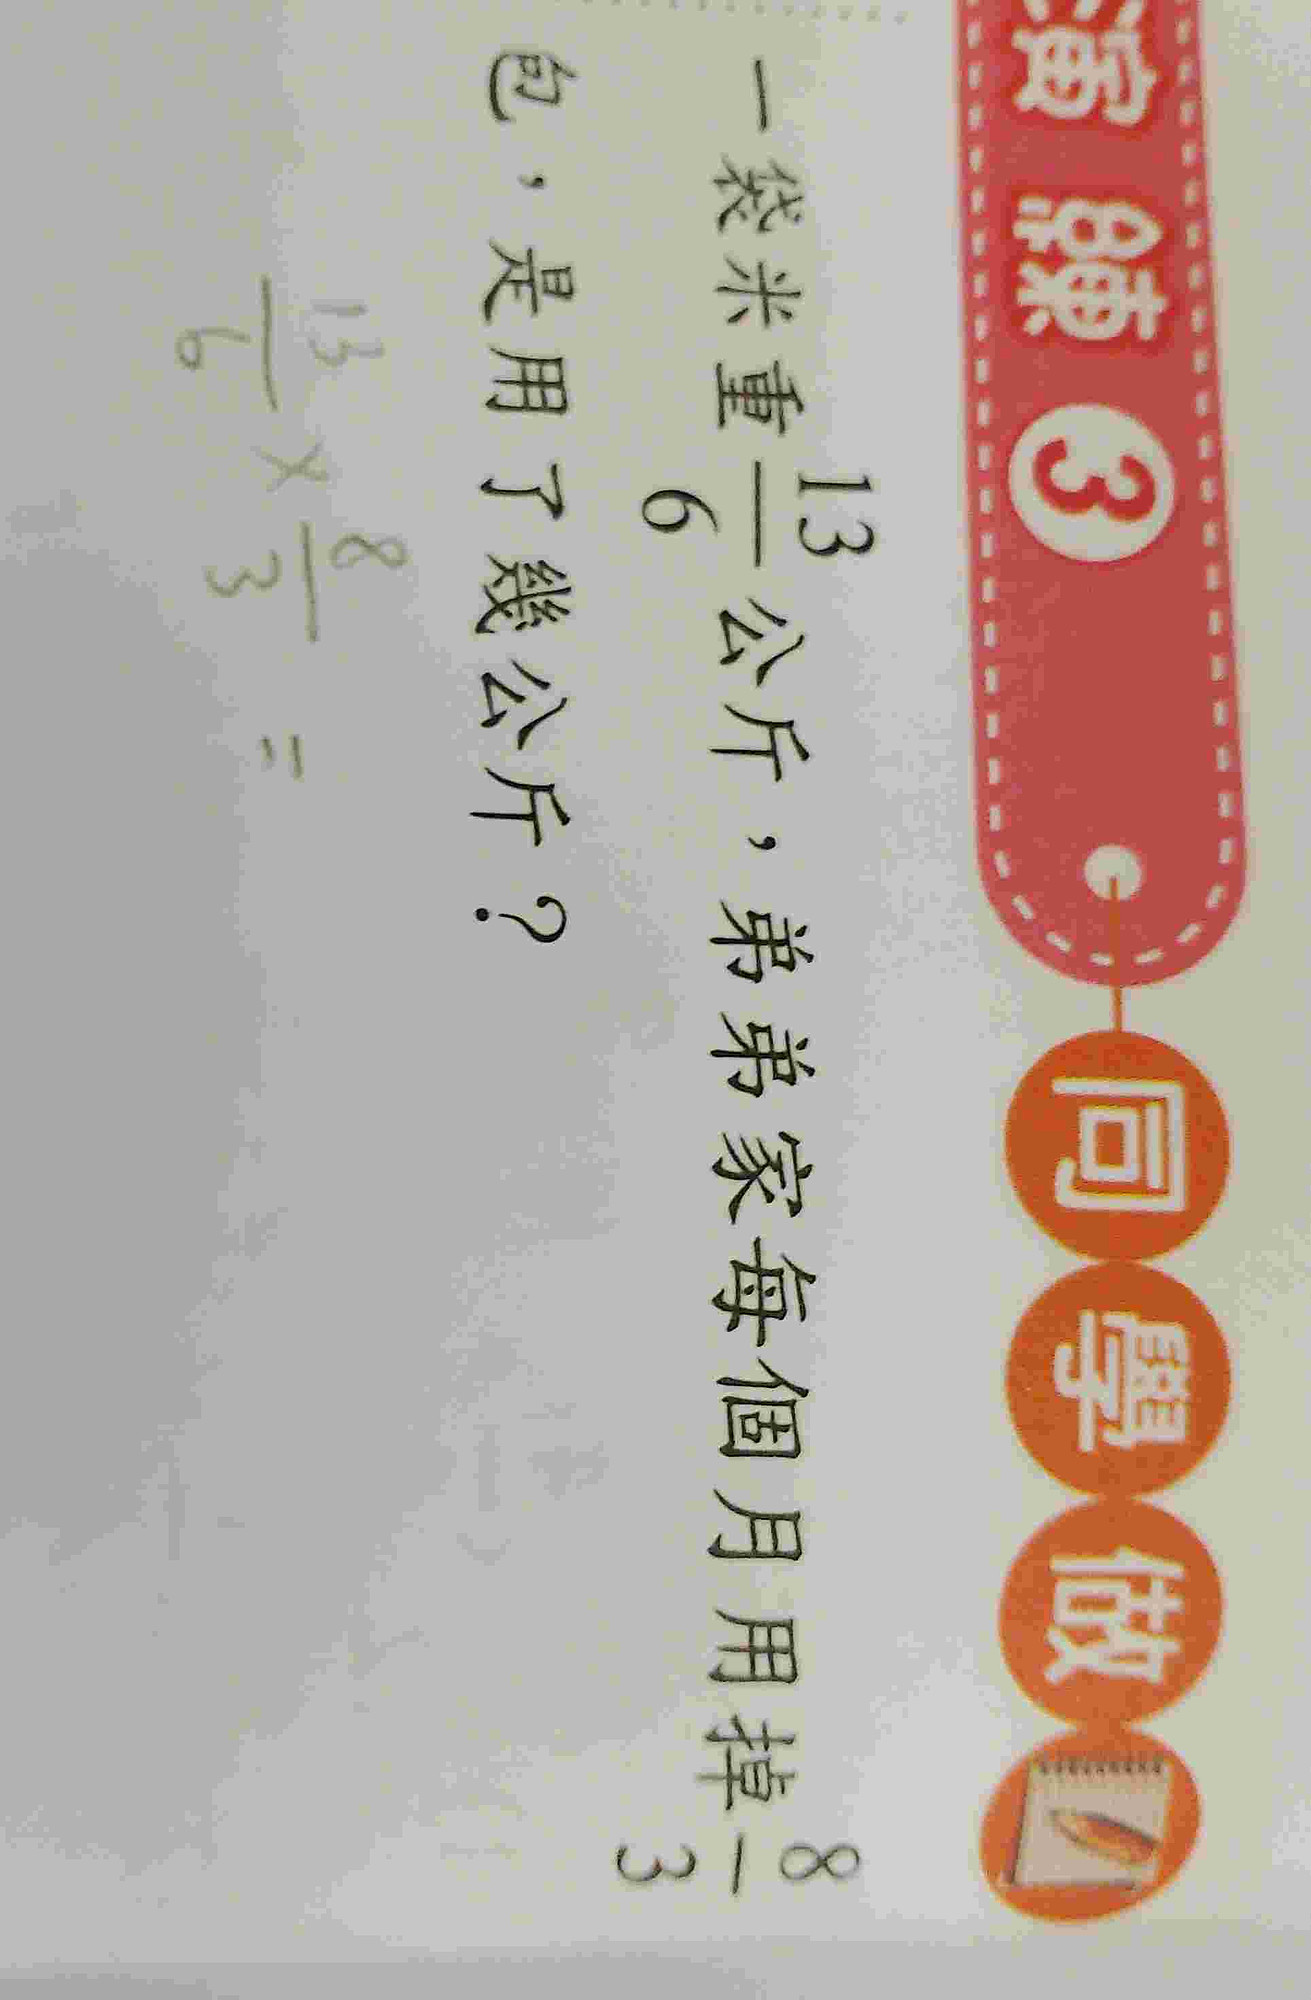 演 練 3 同 學 做
一袋米重 13/6 公斤，弟弟家每個月用掉 8/3
包，是用了幾公斤？
13/6 × 8/3 =